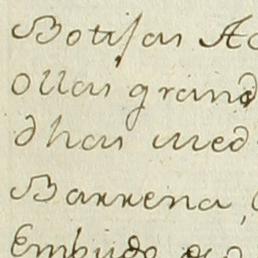 Botijas
Ollas grand
dhas med
Barrena,
Embudo de